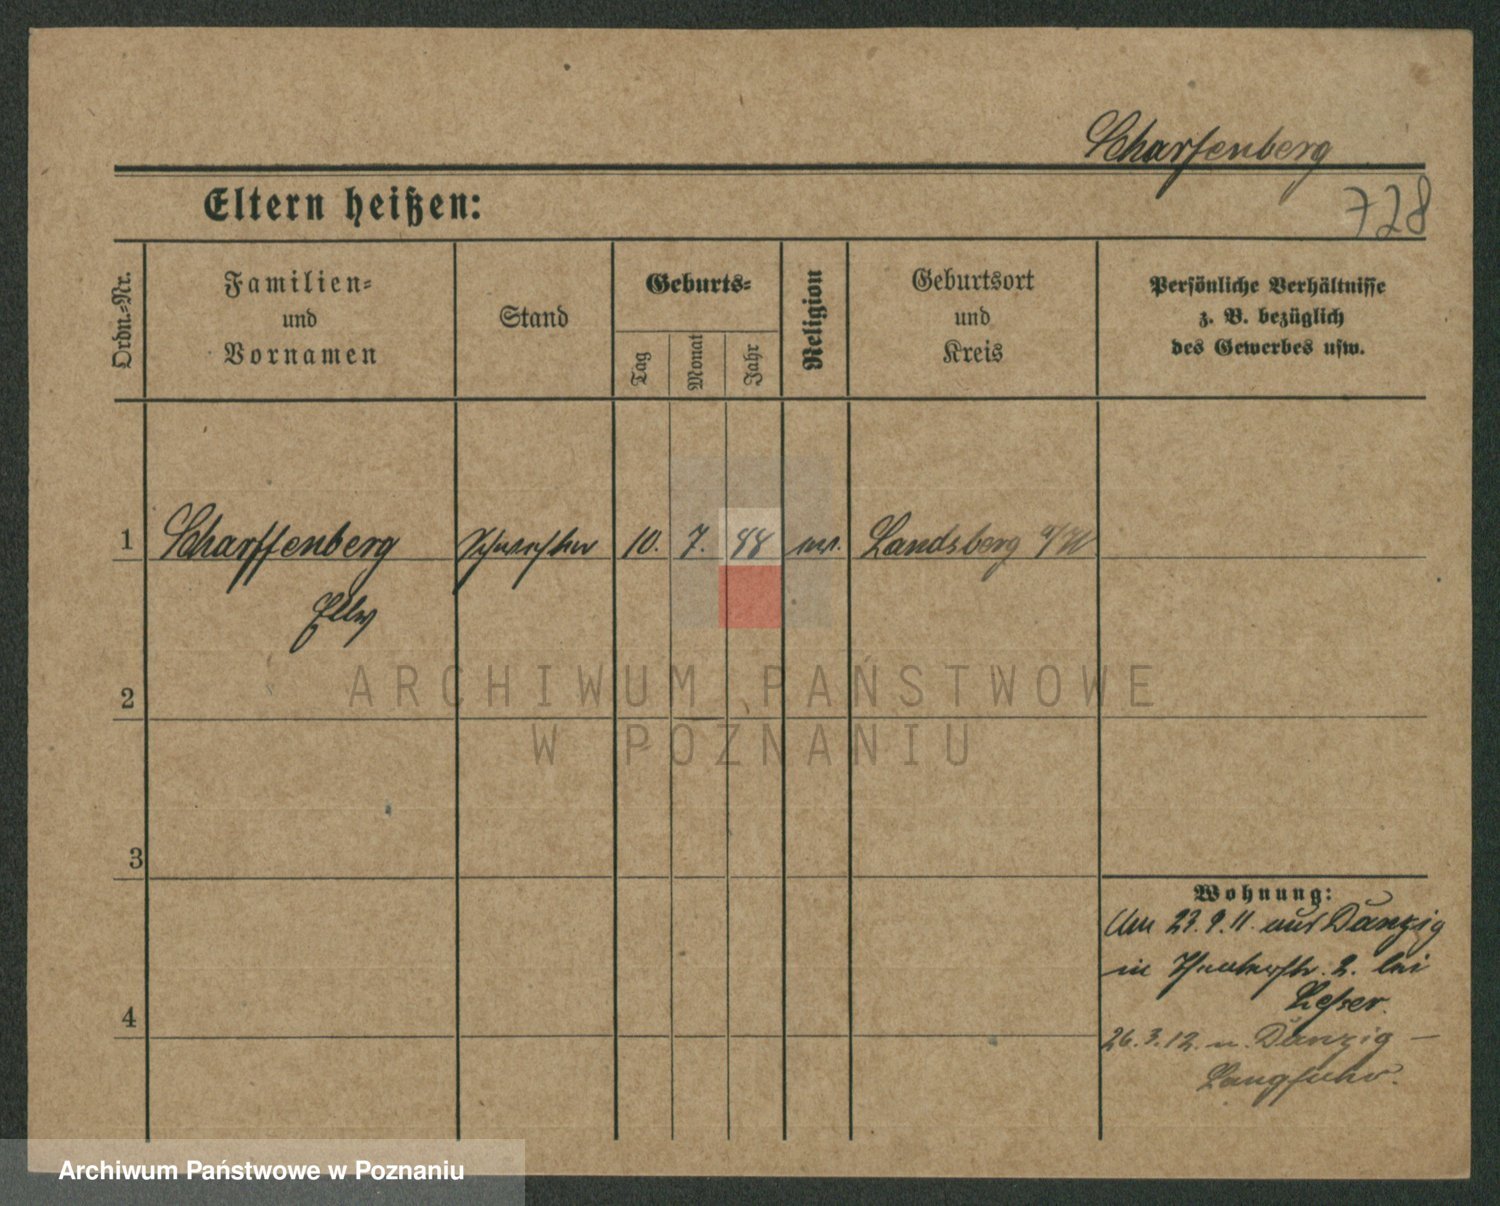 Scharfenberg
Eltern heißen:
728
Ordn.-Nr.
Familien-
und
Vornamen
Stand
Geburts-
Tag
Monat
Jahr
Religion
Geburtsort
und
Kreis
Persönliche Verhältnisse
z. B. bezüglich
des Gewerbes usw.
1
Scharffenberg
Schwester
10.
7.
88
ev.
Landsberg a/W
Elly
2
3
4
Wohnung:
Am 27.9.11. aus Danzig
in 2. bei
Leßer.
26.3.12. n. Danzig –
Langfuhr.
ARCHIWUM PAŃSTWOWE
W POZNANIU
Archiwum Państwowe w Poznaniu